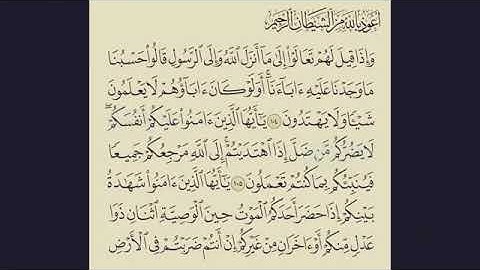 أَعُوذُ بِاللَّهِ مِنَ الشَّيْطَانِ الرَّجِيمِ
وَإِذَا قِيلَ لَهُمْ تَعَالَوْا۟ إِلَىٰ مَآ أَنزَلَ ٱللَّهُ وَإِلَى ٱلرَّسُولِ قَالُوا۟ حَسْبُنَا
مَا وَجَدْنَا عَلَيْهِ ءَابَآءَنَآ ۚ أَوَلَوْ كَانَ ءَابَآؤُهُمْ لَا يَعْلَمُونَ
شَيْـًٔا وَلَا يَهْتَدُونَ ١٠٤ يَـٰٓأَيُّهَا ٱلَّذِينَ ءَامَنُوا۟ عَلَيْكُمْ أَنفُسَكُمْ ۖ
لَا يَضُرُّكُم مَّن ضَلَّ إِذَا ٱهْتَدَيْتُمْ ۚ إِلَى ٱللَّهِ مَرْجِعُكُمْ جَمِيعًا
فَيُنَبِّئُكُم بِمَا كُنتُمْ تَعْمَلُونَ ١٠٥ يَـٰٓأَيُّهَا ٱلَّذِينَ ءَامَنُوا۟ شَهَـٰدَةُ
بَيْنِكُمْ إِذَا حَضَرَ أَحَدَكُمُ ٱلْمَوْتُ حِينَ ٱلْوَصِيَّةِ ٱثْنَانِ ذَوَا
عَدْلٍ مِّنكُمْ أَوْ ءَاخَرَانِ مِنْ غَيْرِكُمْ إِنْ أَنتُمْ ضَرَبْتُمْ فِى ٱلْأَرْضِ